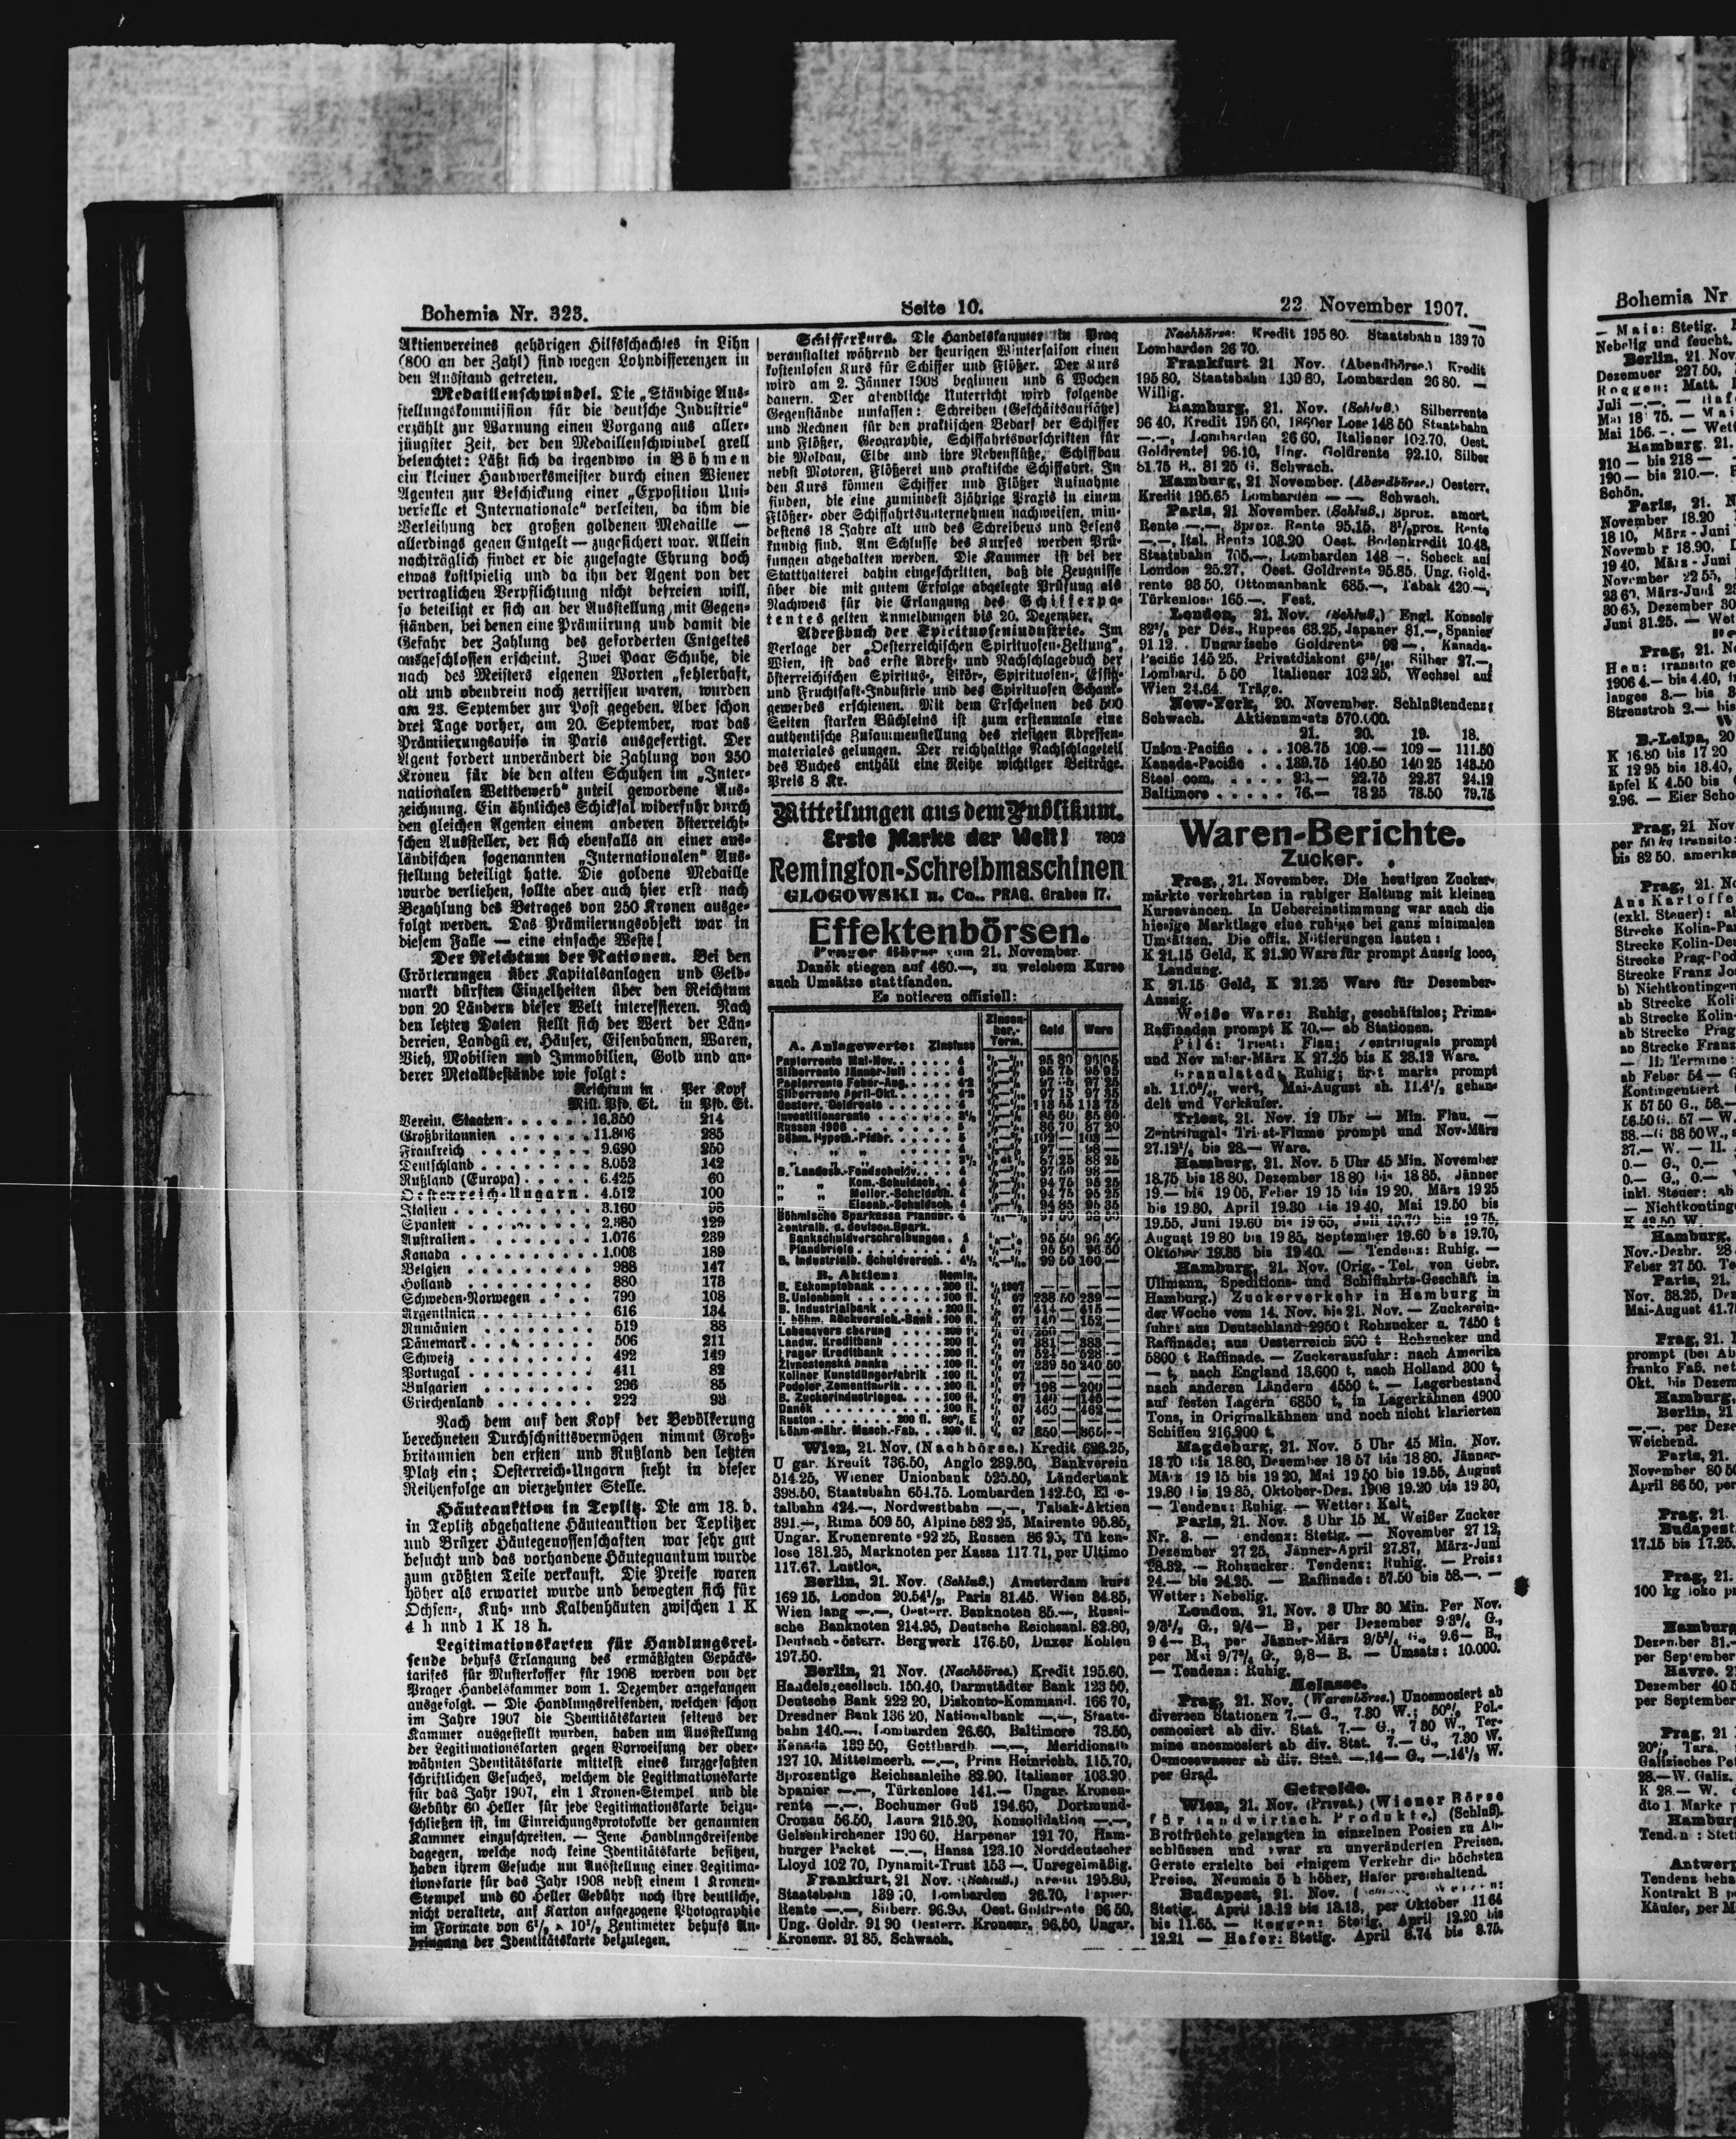 Bohemia Nr. 323.
Seite 10.
22. November 1907.
Aktienvereines gehörigen Hilfsschachtes in Lihn
(800 an der Zahl) sind wegen Lohndifferenzen in
den Ausstand getreten.
Medaillenschwindel. Die „Ständige Aus-
stellungskommission für die deutsche Industrie“
erzählt zur Warnung einen Vorgang aus aller-
jüngster Zeit, der den Medaillenschwindel grell
beleuchtet: Läßt sich da irgendwo in Böhmen
ein kleiner Handwerksmeister durch einen Wiener
Agenten zur Beschickung einer „Exposition Uni-
verselle et Internationale“ verleiten, da ihm die
Verleihung der großen goldenen Medaille —
allerdings gegen Entgelt — zugesichert war. Allein
nachträglich findet er die zugesagte Ehrung doch
etwas kostspielig und da ihn der Agent von der
vertraglichen Verpflichtung nicht befreien will,
so beteiligt er sich an der Ausstellung mit Gegen-
ständen, bei denen eine Prämiirung und damit die
Gefahr der Zahlung des geforderten Entgeltes
ausgeschlossen erscheint. Zwei Paar Schuhe, die
nach des Meisters eigenen Worten „fehlerhaft,
alt und obendrein noch zerrissen waren, wurden
am 23. September zur Post gegeben. Aber schon
drei Tage vorher, am 20. September, war das
Prämiierungsavise in Paris ausgefertigt. Der
Agent fordert unverändert die Zahlung von 250
Kronen für die den alten Schuhen im „Inter-
nationalen Wettbewerb“ zuteil gewordene Aus-
zeichnung. Ein ähnliches Schicksal widerfuhr durch
den gleichen Agenten einem anderen österreichi-
schen Aussteller, der sich ebenfalls an einer aus-
ländischen sogenannten „Internationalen“ Aus-
stellung beteiligt hatte. Die goldene Medaille
wurde verliehen, sollte aber auch hier erst nach
Bezahlung des Betrages von 250 Kronen ausge-
folgt werden. Das Prämiierungsobjekt war in
diesem Falle — eine einfache Weste!
Der Reichtum der Nationen. Bei den
Erörterungen über Kapitalsanlagen und Geld-
markt dürften Einzelheiten über den Reichtum
von 20 Ländern dieser Welt interessieren. Nach
den letzten Daten stellt sich der Wert der Län-
dereien, Landgüter, Häuser, Eisenbahnen, Waren,
Vieh, Mobilien und Immobilien, Gold und an-
derer Metallbestände wie folgt:
Reichtum in Per Kopf
Mill. Pfd. St. in Pfd. St.
Verein. Staaten . . . . . . 16.350 214
Großbritannien . . . . . . 11.806 285
Frankreich . . . . . . . . 9.690 250
Deutschland . . . . . . . . 8.052 142
Rußland (Europa) . . . . . 6.425 60
Oesterreich-Ungarn . 4.512 100
Italien . . . . . . . . . . 3.160 98
Spanien . . . . . . . . . 2.380 129
Australien . . . . . . . . 1.076 239
Kanada . . . . . . . . . . 1.008 189
Belgien . . . . . . . . . 988 147
Holland . . . . . . . . . 880 173
Schweden-Norwegen . . . . 790 108
Argentinien . . . . . . . 616 134
Rumänien . . . . . . . . 519 88
Dänemark . . . . . . . . . 506 211
Schweiz . . . . . . . . . 492 149
Portugal . . . . . . . . . 411 82
Bulgarien . . . . . . . . 296 85
Griechenland . . . . . . . 222 93
Nach dem auf den Kopf der Bevölkerung
berechneten Durchschnittsvermögen nimmt Groß-
britannien den ersten und Rußland den letzten
Platz ein; Oesterreich-Ungarn steht in dieser
Reihenfolge an vierzehnter Stelle.
Häuteauktion in Teplitz. Die am 18. d.
in Teplitz abgehaltene Häuteauktion der Teplitzer
und Brüxer Häutegenossenschaften war sehr gut
besucht und das vorhandene Häutequantum wurde
zum größten Teile verkauft. Die Preise waren
höher als erwartet wurde und bewegten sich für
Ochsen-, Kuh- und Kalbenhäuten zwischen 1 K
4 h und 1 K 18 h.
Legitimationskarten für Handlungsrei-
sende behufs Erlangung des ermäßigten Gepäcks-
tarifes für Musterkoffer für 1908 werden von der
Prager Handelskammer vom 1. Dezember angefangen
ausgefolgt. — Die Handlungsreisenden, welchen schon
im Jahre 1907 die Identitätskarten seitens der
Kammer ausgestellt wurden, haben um Ausstellung
der Legitimationskarten gegen Vorweisung der ober-
wähnten Identitätskarte mittelst eines kurzgefaßten
schriftlichen Gesuches, welchem die Legitimationskarte
für das Jahr 1907, ein 1 Kronen-Stempel und die
Gebühr 60 Heller für jede Legitimationskarte beizu-
schließen ist, im Einreichungsprotokolle der genannten
Kammer einzuschreiten. — Jene Handlungsreisende
dagegen, welche noch keine Identitätskarte besitzen,
haben ihrem Gesuche um Ausstellung einer Legitima-
tionskarte für das Jahr 1908 nebst einem 1 Kronen-
Stempel und 60 Heller Gebühr noch ihre deutliche,
nicht veraltete, auf Karton aufgezogene Photographie
im Formate von 6½ × 10½ Zentimeter behufs An-
bringung der Identitätskarte beizulegen.
Schifferkurs. Die Handelskammer in Prag
veranstaltet während der heurigen Wintersaison einen
kostenlosen Kurs für Schiffer und Flößer. Der Kurs
wird am 2. Jänner 1908 beginnen und 6 Wochen
dauern. Der abendliche Unterricht wird folgende
Gegenstände umfassen: Schreiben (Geschäftsaufsätze)
und Rechnen für den praktischen Bedarf der Schiffer
und Flößer, Geographie, Schiffahrtsvorschriften für
die Moldau, Elbe und ihre Nebenflüße, Schiffbau
nebst Motoren, Flößerei und praktische Schiffahrt. In
den Kurs können Schiffer und Flößer Aufnahme
finden, die eine zumindest 3jährige Praxis in einem
Flößer- oder Schiffahrtsunternehmen nachweisen, min-
destens 18 Jahre alt und des Schreibens und Lesens
kundig sind. Am Schlusse des Kurses werden Prü-
fungen abgehalten werden. Die Kammer ist bei der
Statthalterei dahin eingeschritten, daß die Zeugnisse
über die mit gutem Erfolge abgelegte Prüfung als
Nachweis für die Erlangung des Schifferpa-
tentes gelten Anmeldungen bis 20. Dezember.
Adreßbuch der Spirituosenindustrie. Im
Verlage der „Oesterreichischen Spirituosen-Zeitung“,
Wien, ist das erste Adreß- und Nachschlagebuch der
österreichischen Spiritus-, Likör-, Spirituosen-, Essig-
und Fruchtsaft-Industrie und des Spirituosen Schank-
gewerbes erschienen. Mit dem Erscheinen des 500
Seiten starken Büchleins ist zum erstenmale eine
authentische Zusammenstellung des riesigen Adressen-
materiales gelungen. Der reichhaltige Nachschlageteil
des Buches enthält eine Reihe wichtiger Beiträge.
Preis 8 Kr.
Mitteilungen aus dem Publikum.
Erste Marke der Welt! 7802
Remington-Schreibmaschinen
GLOGOWSKI u. Co., PRAG, Graben 17.
Effektenbörsen.
Prager Börse vom 21. November.
Daněk stiegen auf 460.—, zu welchem Kurse
auch Umsätze stattfanden.
Es notieren offiziell:
A. Anlagewerte: Zinsfuss Zinsen-ber.-Term. Geld Ware
Papierrente Mai-Nov.
Silberrente Jänner-Juli
Papierrente Feber-Aug.
Silberrente April-Okt.
Oesterr. Goldrente
Investitionsrente
Russen 1906
Böhm. Hypoth.-Pfdbr.
B. Landesb.-Fondschuldv.
„ „ Kom.-Schuldsch.
„ „ Melior.-Schuldsch.
„ „ Eisenb.-Schuldsch.
Böhmische Sparkassa
Zentralb. d. deutsch. Spark.
Bankschuldverschreibungen
Pfandbriefe
B. Industrialb. Schuldversch.
B. Aktien: Nomin.
B. Eskomptebank . . . 200 fl.
B. Unionbank . . . 100 fl. 238 50 239 —
B. Industrialbank . . . 200 fl. 414 — 415 —
Landw. Kreditbank . . . 200 fl. 381 — 383 —
Prager Kreditbank . . . 200 fl. 524 — 528 —
Živnostenská banka . . . 100 fl. 239 50 240 50
Koliner Kunstdüngerfabrik . 100 fl.
Podoler Zementfabrik . . . 200 fl. 198 — 200 —
B. Zuckerindustrieges. . . 100 fl. 140 — 146 —
Daněk . . . 100 fl. 460 — 462 —
Ruston . . . 200 fl.
Böhm-mähr. Masch.-Fab. . . 200 fl. 850 — 865 —
Wien, 21. Nov. (Nachbörse.) Kredit 628.25,
Ungar. Kredit 736.50, Anglo 289.50, Bankverein
514.25, Wiener Unionbank 525.50, Länderbank
398.50, Staatsbahn 654.75. Lombarden 142.50, Elbe-
talbahn 424.—, Nordwestbahn —.—, Tabak-Aktien
391.—, Rima 509 50, Alpine 582 25, Mairente 95.85,
Ungar. Kronenrente 92 25, Russen 86 95, Türken-
lose 181.25, Marknoten per Kassa 117.71, per Ultimo
117.67. Lustlos.
Berlin, 21. Nov. (Schluß.) Amsterdam kurz
169 15, London 20.54½, Paris 81.45. Wien 84.85,
Wien lang —.—, Oesterr. Banknoten 85.—, Russi-
sche Banknoten 214.95, Deutsche Reichsanl. 82.80,
Deutsch-österr. Bergwerk 176.50, Duxer Kohlen
197.50.
Berlin, 21 Nov. (Nachbörse.) Kredit 195.60,
Handelsgesellsch. 150.40, Darmstädter Bank 123 50,
Deutsche Bank 222 20, Diskonto-Kommand. 166 70,
Dresdner Bank 136 20, Nationalbank —.—, Staats-
bahn 140.—, Lombarden 26.60, Baltimore 78.50,
Kanada 139 50, Gotthardb. —.—, Meridionalb
127 10, Mittelmeerb. —.—, Prinz Heinrichb. 115.70,
3prozentige Reichsanleihe 82.90, Italiener 103.20,
Spanier —.—, Türkenlose 141.— Ungar. Kronen-
rente —.—, Bochumer Guß 194.60, Dortmund-
Gronau 56.50, Laura 215.20, Konsolidation —.—,
Gelsenkirchener 190 60, Harpener 191 70, Ham-
burger Packet —.—, Hansa 123.10 Norddeutscher
Lloyd 102 70, Dynamit-Trust 153 —. Unregelmäßig.
Frankfurt, 21 Nov. (Schluß.) Kredit 195.80,
Staatsbahn 139 70, Lombarden 26.70, Papier-
Rente —.—, Silberr. 96.90, Oest. Goldrente 96 50,
Ung. Goldr. 91 90 Oesterr. Kronenr. 96.50, Ungar.
Kronenr. 91 85. Schwach.
Nachbörse: Kredit 195 80. Staatsbahn 139 70
Lombarden 26 70.
Frankfurt 21 Nov. (Abendbörse.) Kredit
195 80, Staatsbahn 139 80, Lombarden 26 80. —
Willig.
Hamburg, 21. Nov. (Schluß.) Silberrente
96 40, Kredit 195 60, 1860er Lose 148 50 Staatsbahn
—.—, Lombarden 26 60, Italiener 102.70, Oest.
Goldrente 96.10, Ung. Goldrente 92.10, Silber
81.75 B., 81 25 G. Schwach.
Hamburg, 21. November. (Abendbörse.) Oesterr.
Kredit 195.65 Lombarden — —. Schwach.
Paris, 21 November. (Schluß.) 3proz. amort.
Rente —.—, 3proz. Rente 95.15, 3½proz. Rente
—.—, Ital. Rente 103.20 Oest. Bodenkredit 1048,
Staatsbahn 705.—, Lombarden 148 —, Scheck auf
London 25.27, Oest. Goldrente 95.85, Ung. Gold-
rente 93 50, Ottomanbank 685.—, Tabak 420.—,
Türkenlose 165.—. Fest.
London, 21. Nov. (Schluß.) Engl. Konsols
per Dez., Rupees 63.25, Japaner 81.—, Spanier
91.12. Ungarische Goldrente 92 —, Kanada-
Pacific 145 25, Privatdiskont Silber 27.—,
Lombard. 5 50 Italiener 102 25, Wechsel auf
Wien 24.64. Träge.
New-York, 20. November. Schlußtendenz:
Schwach. Aktienumsatz 570.000.
21. 20. 19. 18.
Union-Pacific . . . 108.75 109.— 109 — 111.50
Kanada-Pacific . . 139.75 140.50 140 25 143.50
Steel com. . . . . 23.— 22.75 22.87 24.12
Baltimore . . . . . 76.— 78 25 78.50 79.75
Waren-Berichte.
Zucker.
Prag, 21. November. Die heutigen Zucker-
märkte verkehrten in ruhiger Haltung mit kleinen
Kursavancen. In Uebereinstimmung war auch die
hiesige Marktlage eine ruhige bei ganz minimalen
Umsätzen. Die offiz. Notierungen lauten:
K 21.15 Geld, K 21.20 Ware für prompt Aussig loco,
Landung.
K 21.15 Geld, K 21.25 Ware für Dezember-
Aussig.
Weiße Ware: Ruhig, geschäftslos; Prima-
Raffinaden prompt K 70.— ab Stationen.
Pilé: Triest: Flau; Zentrifugale prompt
und November-März K 27.25 bis K 28.12 Ware.
Granulated: Ruhig; first marks prompt
sh. wert, Mai-August sh. 11.4½ gehan-
delt und Verkäufer.
Triest, 21. Nov. 12 Uhr — Min. Flau. —
Zentrifugals Triest-Fiume prompt und Nov-März
27.12½ bis 28.— Ware.
Hamburg, 21. Nov. 5 Uhr 45 Min. November
18.75 bis 18 80, Dezember 18 80 bis 18 85, Jänner
19.— bis 19 05, Feber 19 15 bis 19 20, März 19 25
bis 19.30, April 19.30 bis 19 40, Mai 19.50 bis
19.55, Juni 19.60 bis 19 65, Juli 19.70 bis 19 75,
August 19 80 bis 19 85, September 19.60 bis 19.70,
Oktober 19.35 bis 19 40. — Tendenz: Ruhig. —
Hamburg, 21. Nov. (Orig.-Tel. von Gebr.
Ullmann, Speditions- und Schiffahrts-Geschäft in
Hamburg.) Zuckerverkehr in Hamburg in
der Woche vom 14. Nov. bis 21. Nov. — Zuckerein-
fuhr: aus Deutschland 2950 t Rohzucker u. 7450 t
Raffinade; aus Oesterreich 200 t Rohzucker und
5800 t Raffinade. — Zuckerausfuhr: nach Amerika
— t, nach England 13.600 t, nach Holland 300 t,
nach anderen Ländern 4550 t. — Lagerbestand
auf festen Lagern 6850 t, in Lagerkähnen 4900
Tons, in Originalkähnen und noch nicht klarierten
Schiffen 216.200 t.
Magdeburg, 21. Nov. 5 Uhr 45 Min. Nov.
18 70 bis 18.80, Dezember 18 57 bis 18 80, Jänner-
März 19 15 bis 19 20, Mai 19 50 bis 19.55, August
19.80 bis 19 85, Oktober-Dez. 1908 19.20 bis 19 30,
— Tendenz: Ruhig. — Wetter: Kalt.
Paris, 21. Nov. 3 Uhr 15 M. Weißer Zucker
Nr. 3. — Tendenz: Stetig. — November 27 12,
Dezember 27 25, Jänner-April 27.87, März-Juni
28.32. — Rohzucker: Tendenz: Ruhig. — Preis:
24.— bis 24.25. — Raffinade: 57.50 bis 58.—. —
Wetter: Nebelig.
London, 21. Nov. 3 Uhr 30 Min. Per Nov.
9/3½ G., 9/4— B, per Dezember G.,
9 4— B., per Jänner-März G., 9.6— B.,
per Mai G., 9/8— B. — Umsatz: 10.000.
— Tendenz: Ruhig.
Melasse.
Prag, 21. Nov. (Warenbörse.) Unosmosiert ab
diversen Stationen 7.— G., 7.30 W.; 50% Pol.-
osmosiert ab div. Stat. 7.— G., 7 30 W., Ter-
mine unosmosiert ab div. Stat. 7.— G., 7.30 W.
Osmosewasser ab div. Stat. —.14— G., —.14½ W.
per Grad.
Getreide.
Wien, 21. Nov. (Privat.) (Wiener Börse
für landwirtsch. Produkte.) (Schluß).
Brotfrüchte gelangten in einzelnen Posten zu Ab-
schlüssen und zwar zu unveränderten Preisen.
Gerste erzielte bei einigem Verkehr die höchsten
Preise. Neumais 5 h höher, Hafer preishaltend.
Budapest, 21. Nov.
Stetig. April 13.12 bis 13.13, per Oktober 11 64
bis 11.65. — Roggen: Stetig. April 12.20 bis
12.21 — Hafer: Stetig. April 8.74 bis 8.75.
Bohemia Nr
— Mais: Stetig.
Nebelig und feucht.
Berlin, 21. Nov.
Dezember 227.50,
Roggen: Matt.
Juli —.—.
Mai 156.—. — Wett
Hamburg. 21.
210 — bis 218 —
190 — bis 210.—.
Schön.
Paris, 21. N
November 18.20
18 10, März-Juni
November 18.90,
19 40, März-Juni
November 22 55,
30 65, Dezember 30
Juni 31.25. — Wet
Prag, 21. N
Heu: transito ge
1906 4.— bis 4.40,
langes 3.— bis 3
Streustroh 2.— bis
B.-Leipa, 20
K 16.80 bis 17 20
K 12 95 bis 13.40,
äpfel K 4.50 bis
2.96. — Eier Scho
Prag, 21 Nov
per 50 kg transito:
bis 82 50, amerika
Prag, 21. No
Aus Kartoffe
(exkl. Steuer): ab
Strecke Kolin-Par
Strecke Kolin-Deu
Strecke Prag-Bod
Strecke Franz Jo
b) Nichtkontingen
ab Strecke Koli
ab Strecke Kolin-
ab Strecke Prag
ab Strecke Franz
— II. Termine:
ab Feber 54 — G
Kontingentiert
K 57 50 G., 58.—
56.50 G., 57 — W.
38.— G 38 50 W.,
37.— W. — II.
0.— G., 0.—
0.— G., 0.—
inkl. Steuer: ab
— Nichtkonting
K 42.50 W.
Hamburg,
Nov.-Dezbr. 28
Feber 27 50. Te
Paris, 21.
Nov. 38.25, Dez
Mai-August 41.7
Prag, 21.
prompt (bei Ab
franko Faß. net
Okt. bis Dezem
Hamburg,
Berlin, 21
—.— per Deze
Weichend.
Paris, 21.
November 80 50
April 86 50, per
Prag, 21.
Budapest
17.15 bis 17.25.
Prag, 21.
100 kg loko pr
Hamburg
Dezember 31.—
per September
Havre. 2
Dezember 40 5
per September
Prag, 21
20% Tara.
Galizisches Pet
28.— W. Galiz.
K 28.— W.
dto I. Marke p
Hamburg
Tenden : Stet
Antwerp
Tendenz beha
Kontrakt B p
Käufer, per M